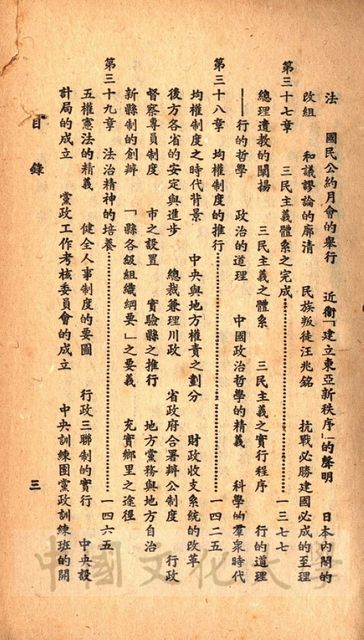 法　國民公約月會的舉行　近衞「建立東亞新秩序」的聲明　日本內閣的
改組　和議謬論的廓清　民族叛徒汪兆銘　抗戰必勝建國必成的至理
第三十七章　三民主義體系之完成…………一三七七
總理遺教的闡揚　三民主義之體系　三民主義之實行程序　行的道理
——行的哲學　政治的道理　中國政治哲學的精義　科學的羣衆時代
第三十八章　均權制度的推行…………一四二五
均權制度之時代背景　中央與地方權責之劃分　財政收支系統的改革
後方各省的安定與進步　總裁兼理川政　省政府合署辦公制度　行政
督察專員制度　市之設置　實驗縣之推行　地方黨務與地方自治
新縣制的創辦　「縣各級組織綱要」之要義　充實鄉里之途徑
第三十九章　法治精神的培養…………一四六五
五權憲法的精義　健全人事制度的要圖　行政三聯制的實行　中央設
計局的成立　黨政工作考核委員會的成立　中央訓練團黨政訓練班的開
目錄　三
中國文化大學